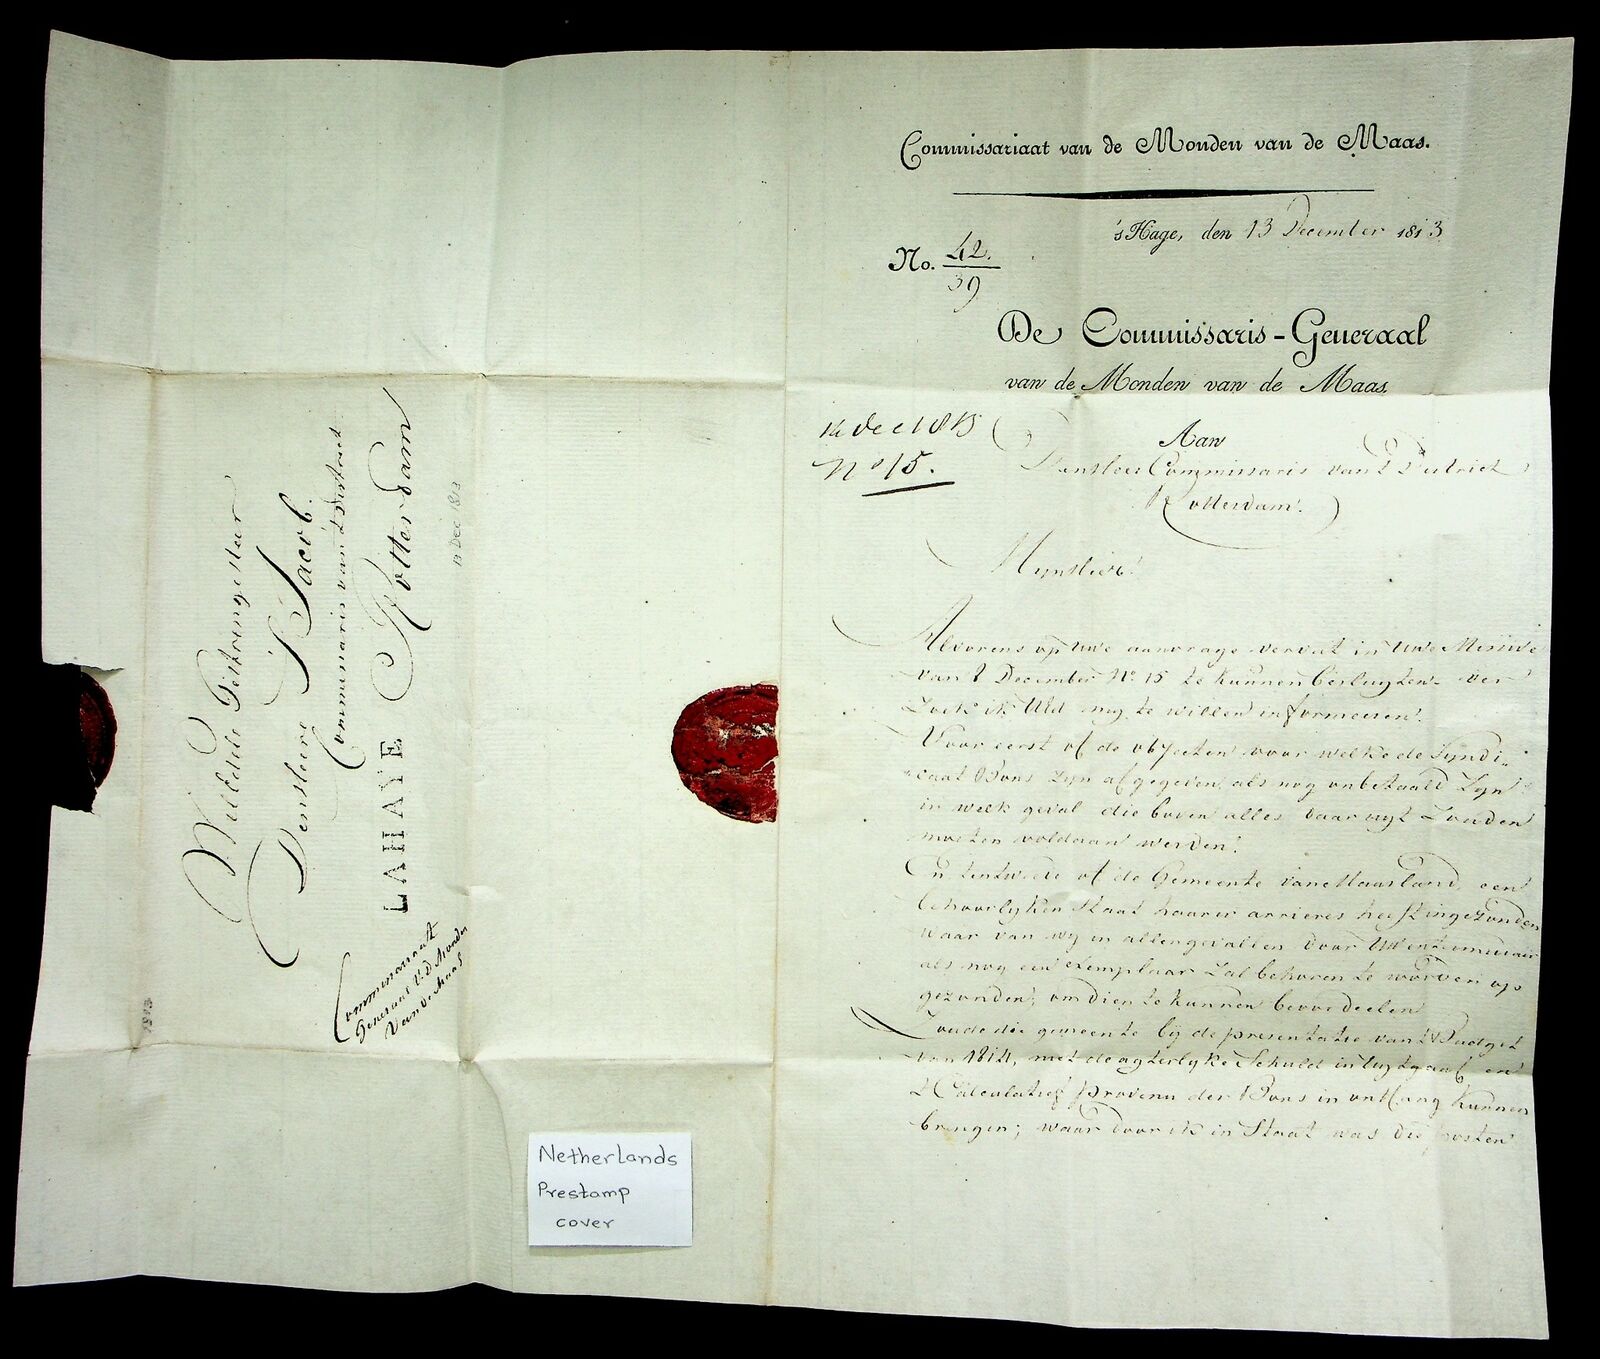 Commissariaat van de Monden van de Maas.
's Hage, den 13 December 1813
No. 42.
39
De Commissaris-Generaal
van de Monden van de Maas.
14 dec 1813
No 15.
Aan
den Heer Commissaris van 't District
Rotterdam.
Mijnheer!
Alvorens op Uwe aanvrage vervat in Uwe Missive
van 8 December No. 15 te kunnen besluyten ver
zoek ik UEd my te willen informeeren.
Voor eerst of de objecten voor welke de Syndi-
caat Bons zyn afgegeven, als nog onbetaald zyn
in welk geval die boven alles daar uyt zouden
moeten voldaan werden.
En ten tweede of de Gemeente van Maasland, een
behoorlyken Staat haarer arrieres heeft ingezonden
waar van wy in allen gevallen door
als nog een exemplaar zal behoren te worden op
gezonden, om dien te kunnen beoordeelen
Zoude die gemeente by de presentatie van 't Budget
van 1814, met de agterlyke Schuld in uytgaaf en
't Calculatief provenu der Bons in ontfang kunnen
brengen; waar door ik in Staat was die posten
Weledele Gestrenge Heer
Den Heere Jacob.
Commissaris van 't District
Rotterdam
LAHAYE
13 Dec 1813
Commissariaat
Generaal v. d. Monden
van de Maas
1813
Netherlands
Prestamp
cover